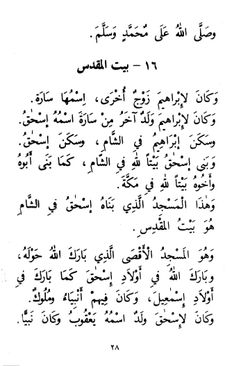 وَصَلَّى اللهُ عَلَى مُحَمَّدٍ وَسَلَّمَ.
١٦ - بيت المقدس
وَكَانَ لِإِبْرَاهِيمَ زَوْجٌ أُخْرَى، اِسْمُهَا سَارَة.
وَكَانَ لِإِبْرَاهِيمَ وَلَدٌ آخَرُ مِنْ سَارَةَ اسْمُهُ إِسْحٰقُ.
وَسَكَنَ إِبْرَاهِيمُ فِي الشَّامِ، وَسَكَنَ إِسْحٰقُ.
وَبَنَى إِسْحٰقُ بَيْتاً لِلهِ فِي الشَّامِ، كَمَا بَنَى أَبُوهُ
وَأَخُوهُ بَيْتاً لِلهِ فِي مَكَّةَ.
وَهٰذَا الْمَسْجِدُ الَّذِي بَنَاهُ إِسْحٰقُ فِي الشَّامِ
هُوَ بَيْتُ الْمَقْدِسِ.
وَهُوَ الْمَسْجِدُ الْأَقْصَى الَّذِي بَارَكَ اللهُ حَوْلَهُ،
وَبَارَكَ اللهُ فِي أَوْلَادِ إِسْحٰقَ كَمَا بَارَكَ فِي
أَوْلَادِ إِسْمٰعِيلَ، وَكَانَ فِيهِمْ أَنْبِيَاءُ وَمُلُوكٌ.
وَكَانَ لِإِسْحٰقَ وَلَدٌ اسْمُهُ يَعْقُوبُ وَكَانَ نَبِيًّا.
٢٨